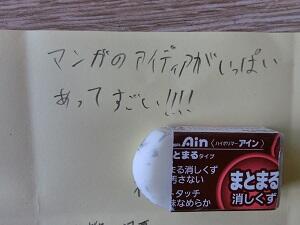 マンガのアイディアがいっぱい
あってすごい!!!!
Ain〈ハイポリマーアイン〉
まとまるタイプ
まる消しくず
汚さない
タッチ
なめらか
まとまる
消しくず